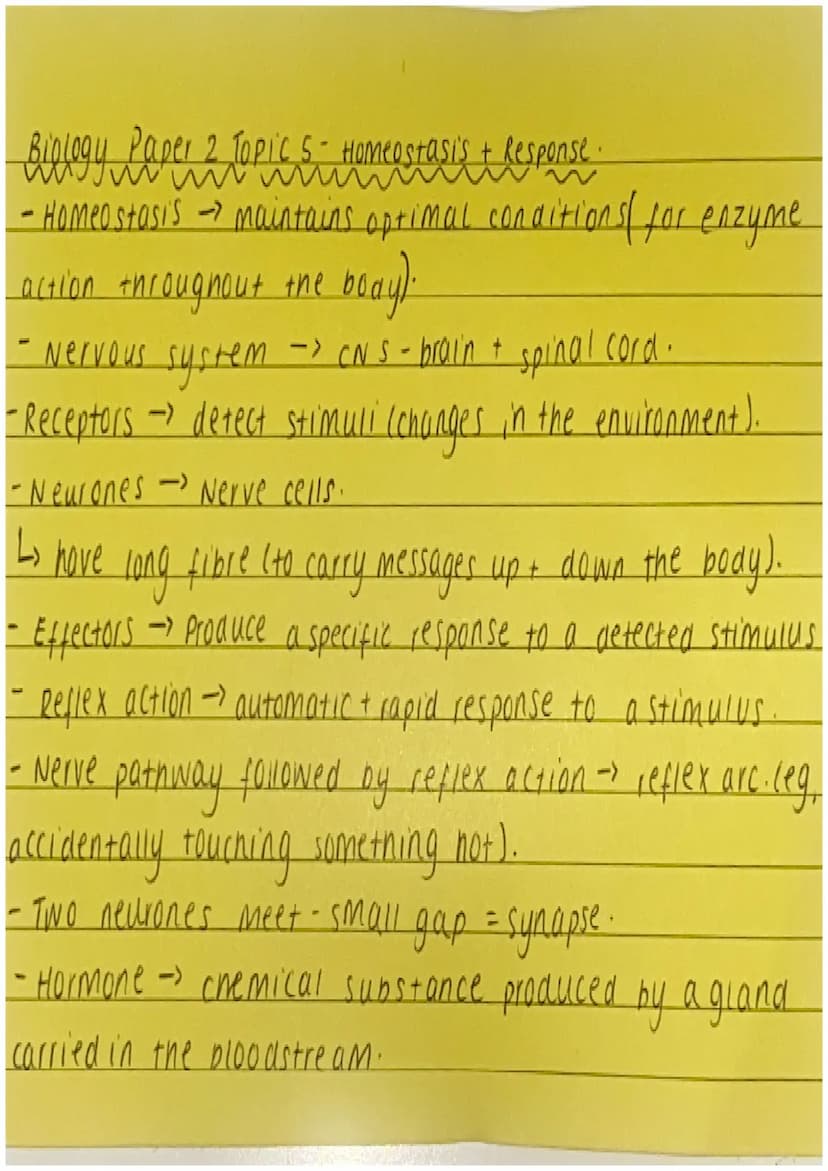 Biology Paper 2 Topic 5 - Homeostasis + Response.
- Homeostasis → maintains optimal conditions( for enzyme
action throughout the body).
- Nervous system → CNS - brain + spinal cord.
- Receptors → detect stimuli (changes in the environment).
- Neurones → Nerve cells.
↳ have long fibre (to carry messages up + down the body).
- Effectors → Produce a specific response to a detected stimulus
- Reflex action → automatic + rapid response to a stimulus.
- Nerve pathway followed by reflex action → reflex arc. (eg,
accidentally touching something hot).
- Two neurones meet - small gap = synapse.
- Hormone → chemical substance produced by a gland
carried in the bloodstream.